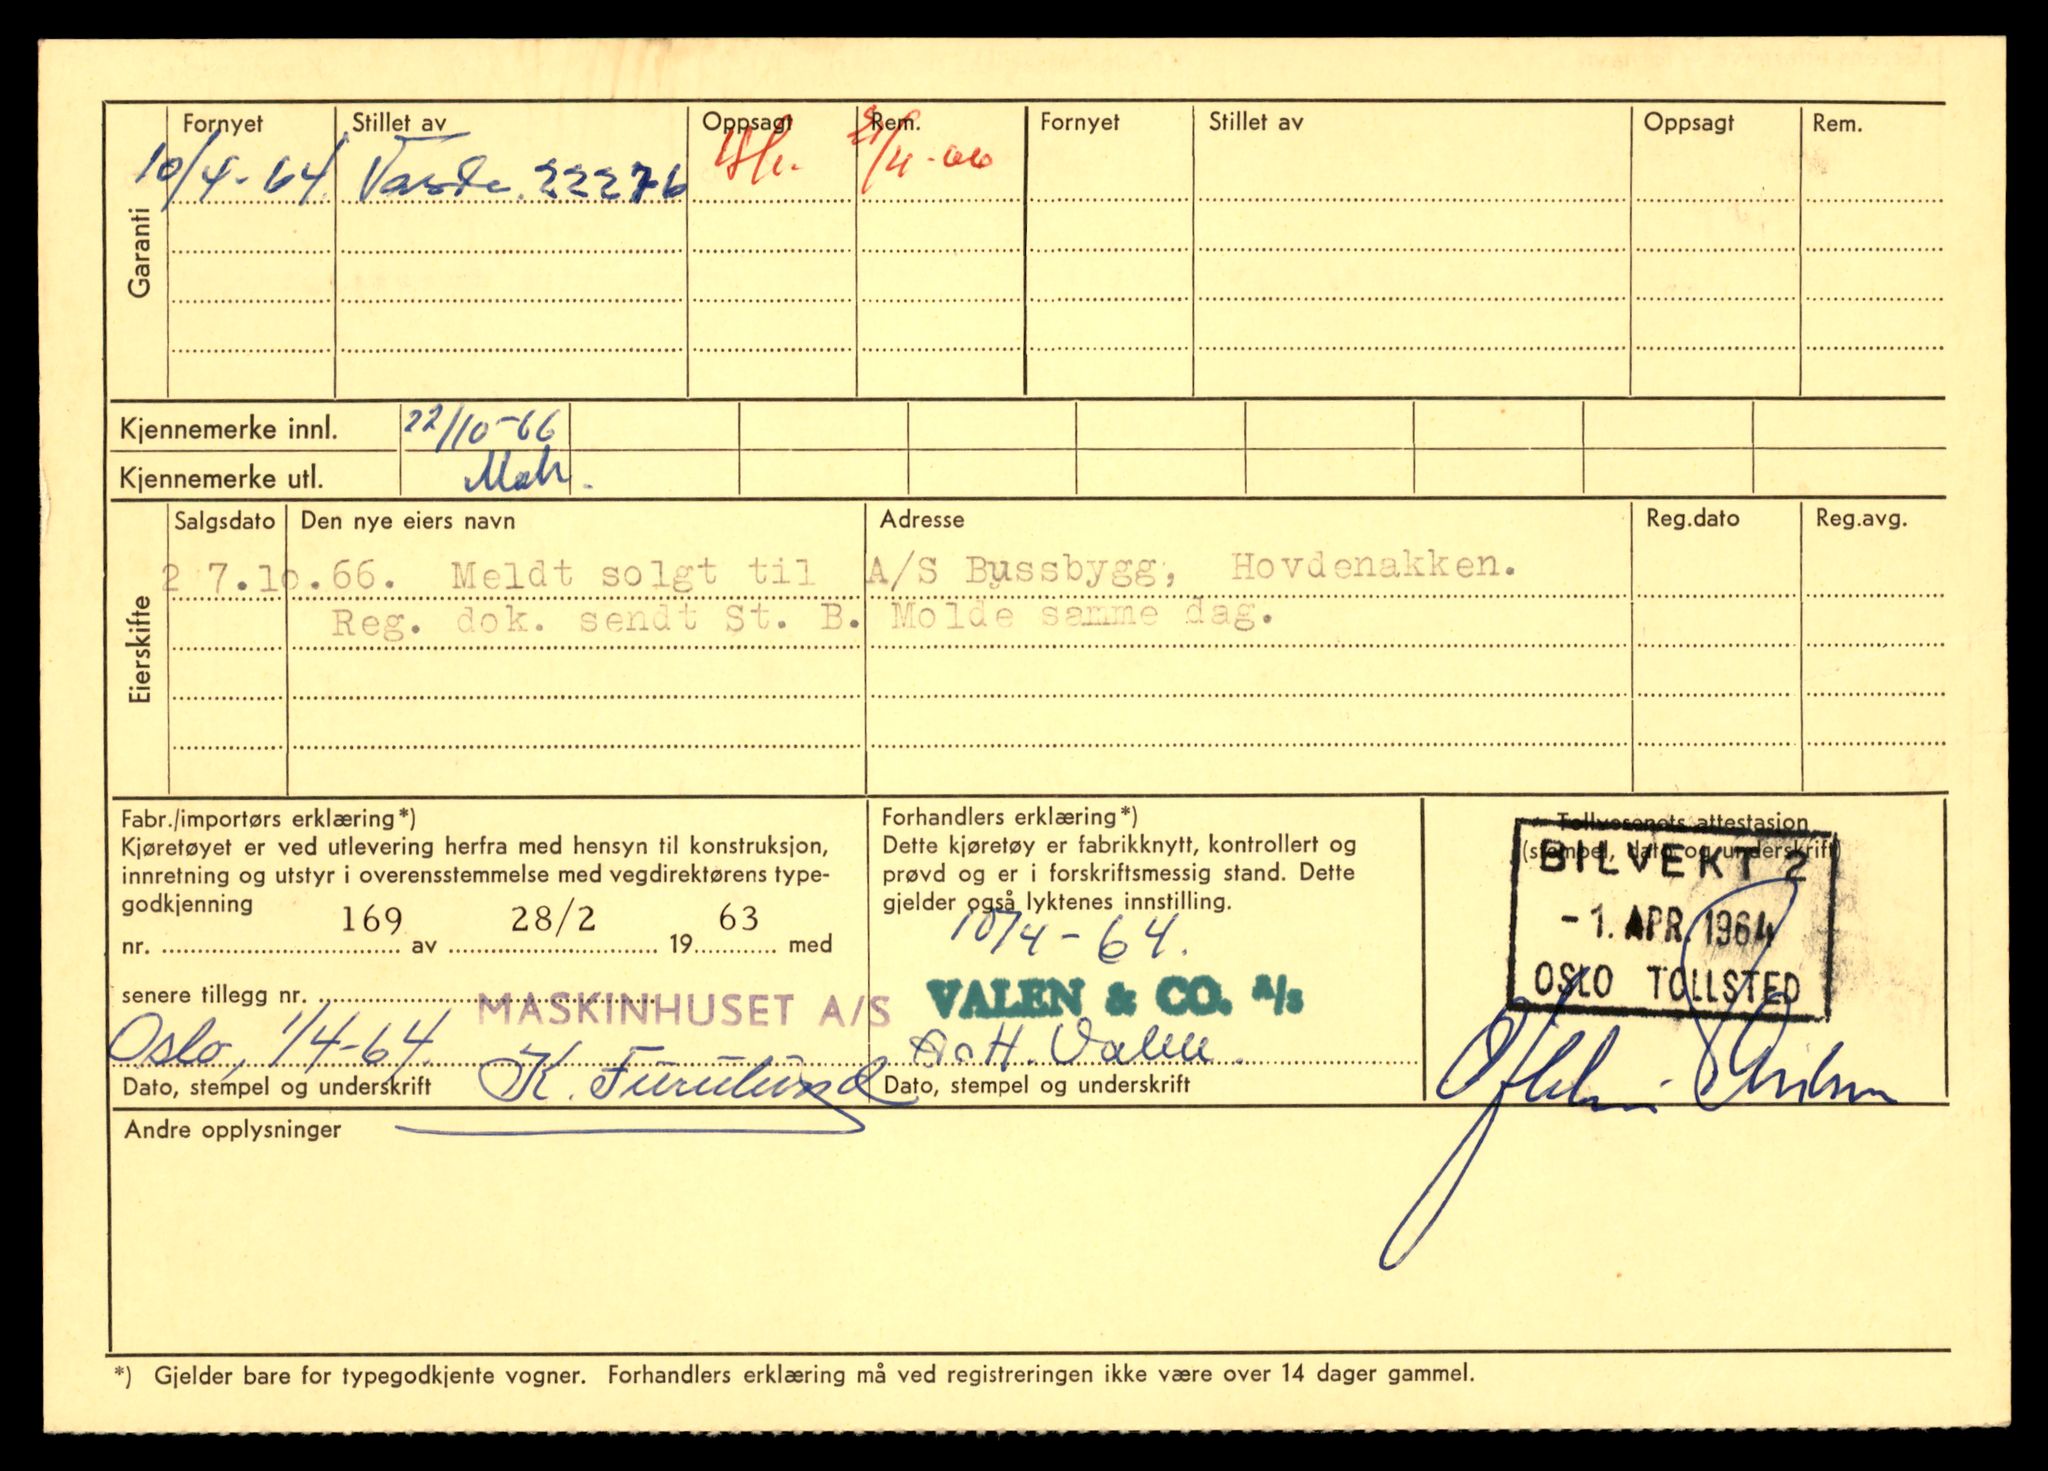 Fornyet Stillet av Oppsagt Rem. Fornyet Stillet av Oppsagt Rem.
10/4-64. 22276
Garanti
Kjennemerke innl. 22/10-66
Kjennemerke utl.
Salgsdato Den nye eiers navn Adresse Reg.dato Reg.avg.
Eierskifte
27.10.66. Meldt solgt til A/S Bussbygg, Hovdenakken.
Reg. dok. sendt St. B. Molde samme dag.
Fabr./importørs erklæring*)
Kjøretøyet er ved utlevering herfra med hensyn til konstruksjon,
innretning og utstyr i overensstemmelse med vegdirektørens type-
godkjenning
nr. 169 av 28/2 19 63 med
senere tillegg nr.
MASKINHUSET A/S
Oslo, 1/4-64. K. Furulund
Dato, stempel og underskrift
Forhandlers erklæring*)
Dette kjøretøy er fabrikknytt, kontrollert og
prøvd og er i forskriftsmessig stand. Dette
gjelder også lyktenes innstilling.
10/4-64.
VALEN & CO. A/S
Valen.
Dato, stempel og underskrift
Tollvesenets attestasjon
(stempel, dato og underskrift)
BILVEKT 2
-1. APR. 1964
OSLO TOLLSTED
Andre opplysninger
*) Gjelder bare for typegodkjente vogner. Forhandlers erklæring må ved registreringen ikke være over 14 dager gammel.